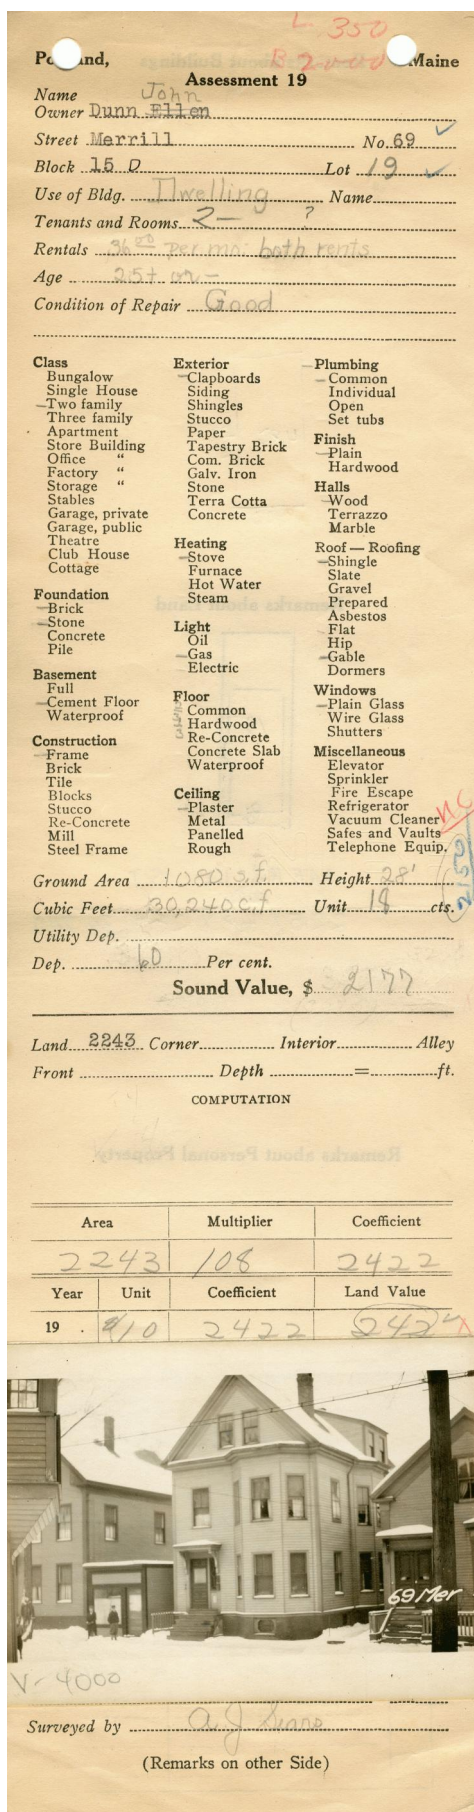 L 350
B 2000
Portland, Maine
Assessment 19
Name John
Owner Dunn Ellen
Street Merrill No. 69
Block 15 D Lot 19
Use of Bldg. Dwelling Name
Tenants and Rooms 2— ?
Rentals 36 00 per mo. both rents
Age 25 + or -
Condition of Repair Good
Class
Bungalow
Single House
Two family
Three family
Apartment
Store Building
Office "
Factory "
Storage "
Stables
Garage, private
Garage, public
Theatre
Club House
Cottage
Foundation
Brick
Stone
Concrete
Pile
Basement
Full
Cement Floor
Waterproof
Construction
Frame
Brick
Tile
Blocks
Stucco
Re-Concrete
Mill
Steel Frame
Exterior
Clapboards
Siding
Shingles
Stucco
Paper
Tapestry Brick
Com. Brick
Galv. Iron
Stone
Terra Cotta
Concrete
Heating
Stove
Furnace
Hot Water
Steam
Light
Oil
Gas
Electric
Floor
Common
Hardwood
Re-Concrete
Concrete Slab
Waterproof
Ceiling
Plaster
Metal
Panelled
Rough
Plumbing
Common
Individual
Open
Set tubs
Finish
Plain
Hardwood
Halls
Wood
Terrazzo
Marble
Roof — Roofing
Shingle
Slate
Gravel
Prepared
Asbestos
Flat
Hip
Gable
Dormers
Windows
Plain Glass
Wire Glass
Shutters
Miscellaneous
Elevator
Sprinkler
Fire Escape
Refrigerator
Vacuum Cleaner
Safes and Vaults
Telephone Equip.
N.C.
Ground Area 1080 s.f. Height 28'
Cubic Feet 30,240 c.f. Unit 18 cts.
Utility Dep.
Dep. 60 Per cent.
Sound Value, $ 2177
Land 2243 Corner Interior Alley
Front Depth = ft.
COMPUTATION
Area Multiplier Coefficient
2243 108 2422
Year Unit Coefficient Land Value
19 . 10 2422 242
69 Mer
V-4000
Surveyed by
(Remarks on other Side)